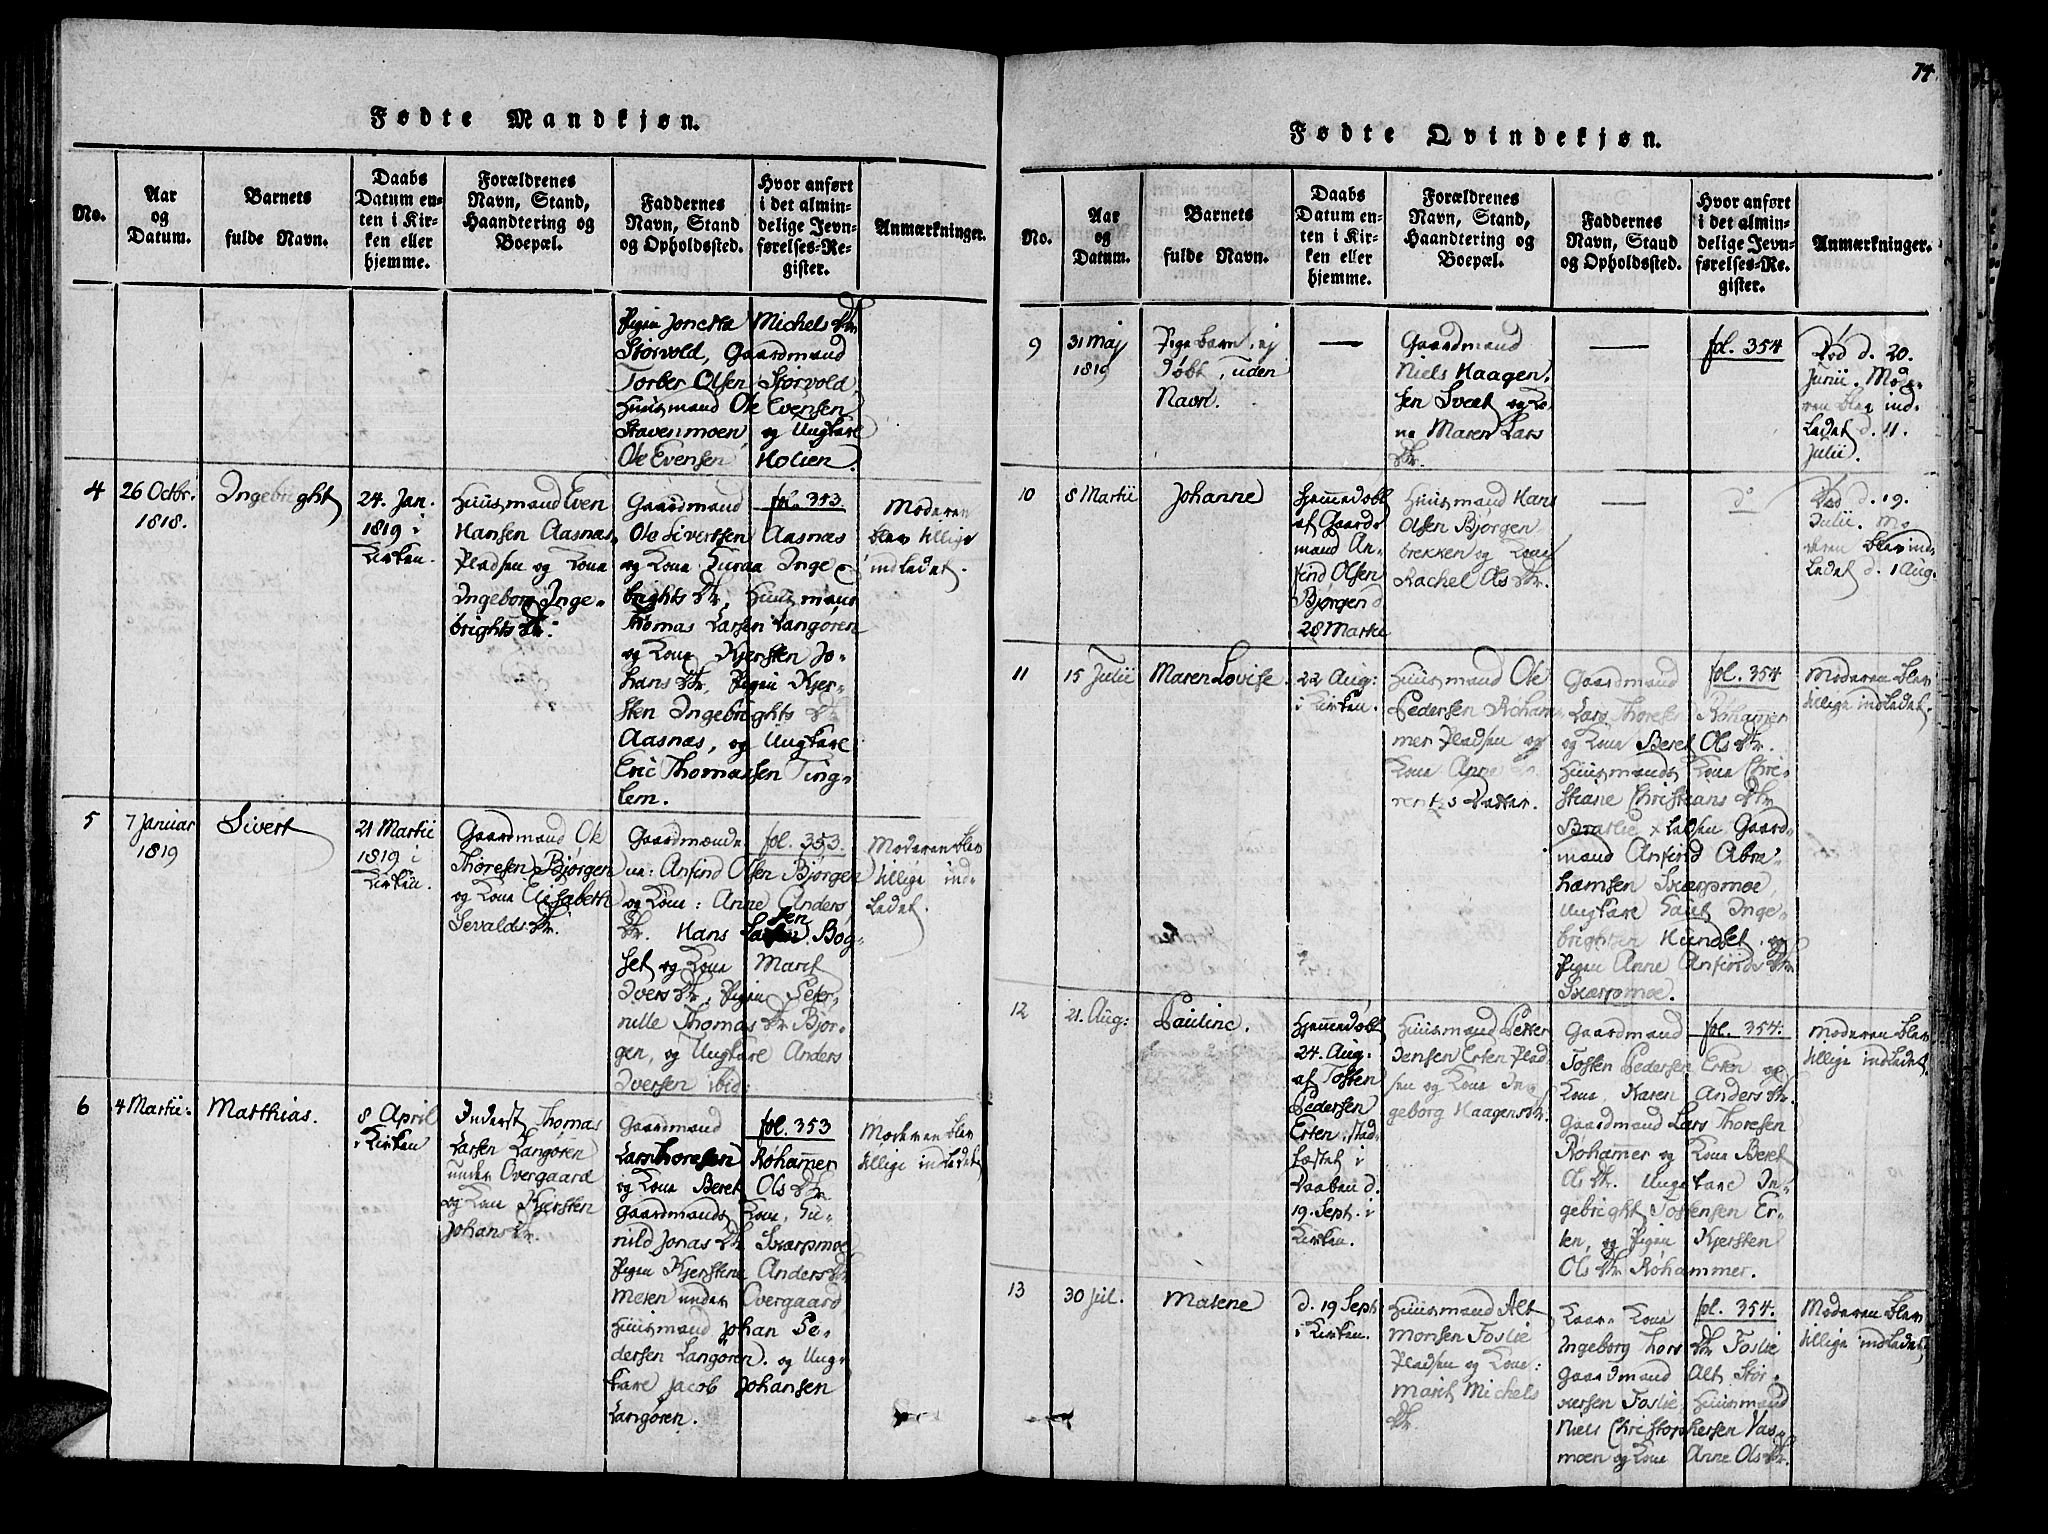 74.
Fødte Mandkjøn.
No.
Aar
og
Datum.
Barnets
fulde Navn.
Daabs
Datum en-
ten i Kir-
ken eller
hjemme.
Forældrenes
Navn, Stand,
Haandtering og
Boepæl.
Faddernes
Navn, Stand
og Opholdssted.
Hvor anført
i det almin-
delige Jevn-
førelses-Re-
gister.
Anmærkninger.
Pigen Jonetta Michels Dtr
Storvold, Gaardmand
Torber Olsen Storvold,
Huusmand Ole Evensen
Stavenmoen, og Ungkarl
Ole Evensen Holien.
4
26 Octbr.
1818.
Ingebright
24. Jan.
1819 i
Kirken.
Huusmand Even
Hansen Aasnæs
Pladsen og Kone
Ingeborg Inge-
brights Dtr.
Gaardmand fol. 353.
Ole Sivertsen Aasnæs
og Kone Inge-
brights Dtr, Huusmand
Thomas Larsen Langøren
og Kone Kjersten Jo-
hans Dtr, Pigen Kjer-
sten Ingebrights Dtr
Aasnæs, og Ungkarl
Eric Thomassen Ting-
lem.
Moderen
blev tillige
indledet.
5
7 Januar
1819
Sivert
21 Martii
1819 i
Kirken.
Gaardmand Ole
Thoresen Bjørgen
og Kone Elisabeth
Sevalds Dtr.
Gaardmænde- fol. 353.
ne: Anfind Olsen Bjørgen
og Kone: Anne Anders
Dtr. Hans Bog-
set og Kone Marit
Ivers Dtr. Pigen Peter-
nille Thomas Dtr Bjør-
gen, og Ungkarl Anders
Iversen ibid:
Moderen blev
tillige ind-
ledet.
6
4 Martii.
Matthias.
8 April
i Kirken
Inderst Thomas
Larsen Langøren
under Overgaard
og Kone Kjersten
Johans Dtr.
Gaardmand fol. 353
Lars Thoresen Røhamer
og Kone Beret Ols Dtr.
Gaardmands Kone, Gu-
nild Jonas Dtr Skarpmoe
Pigen Kjerstine Anders Dtr
Moen under Overgaard
Huusmand Johan Pe-
dersen Langøren. og Ung-
karl Jacob Johansen
Langøren.
Moderen blev
tillige indledet
Fødte Qvindekjøn.
No.
Aar
og
Datum.
Barnets
fulde Navn.
Daabs
Datum en-
ten i Kir-
ken eller
hjemme.
Forældrenes
Navn, Stand,
Haandtering og
Boepæl.
Faddernes
Navn, Stand
og Opholdssted.
Hvor anført
i det almin-
delige Jevn-
førelses-Re-
gister.
Anmærkninger.
9
31 Maj
1819
Pigebarn, ej
døbt, uden
Navn.
Gaardmand
Niels Haagen-
sen Sveet og Ko-
ne Maren Lars
Dtr.
fol. 354
Død d. 20.
Junii. Mode-
ren blev ind-
ledet d. 11.
Julii.
10
8 Martii
Johanne
Hjemmedøbt
af Gaard-
mand An-
find Olsen
Bjørgen d.
28 Martii
Huusmand Hans
Olsen Bjørgen
brekken og Kone
Rachel Ols Dtr.
do
Død d. 19.
Julii. Mo-
deren blev ind-
ledet d. 1 Aug.
11
15 Julii
Maren Lovise.
22 Aug:
i Kirken.
Huusmand Ole
Pedersen Røham-
mer Pladsen og
Kone Anne
rentzs Datter.
Gaardmand fol. 354
Lars Thoresen Røhammer
og Kone Beret Ols Dtr.
Huusmands Kone Chri-
stiane Christians Dtr
Gaard-
mand Anfind Abra-
hamsen Skarpmoe,
Ungkarl Inge-
brightsen Hundset. og
Pigen Anne Anfinds Dtr
Skarpmoe.
Moderen blev
tillige indledet.
12
21. Aug:
Pauline.
Hjemmedøbt
24. Aug.
af Tosten
Pedersen
Erten, stad-
fæstet i
Daaben d.
19. Sept. i
Kirken.
Huusmand Petter
Jensen Erten Plad-
sen og Kone In-
geborg Haagens Dtr.
Gaardmand fol. 354.
Tosten Pedersen Erten og
Kone, Karen Anders Dtr.
Gaardmand Lars Thoresen
Røhamer og Kone Beret
Ols Dtr. Ungkarl In-
gebright Tostensen Er-
ten, og Pigen Kjersten
Ols Dtr Røhammer.
Moderen blev
tillige indledet.
13
30 Jul.
Malene
d. 19 Sept
i Kirken.
Huusmand Alt
Monsen Foslie
Pladsen og Kone:
Marit Michels
Dtr.
Kone fol. 354.
Ingeborg Thors Dtr Foslie
Gaardmand Alt Stor-
kersen Foslie, Huusmand
Niels Christophersen Vas-
moen og Kone Anne Ols Dtr.
Moderen blev
tillige indledet,